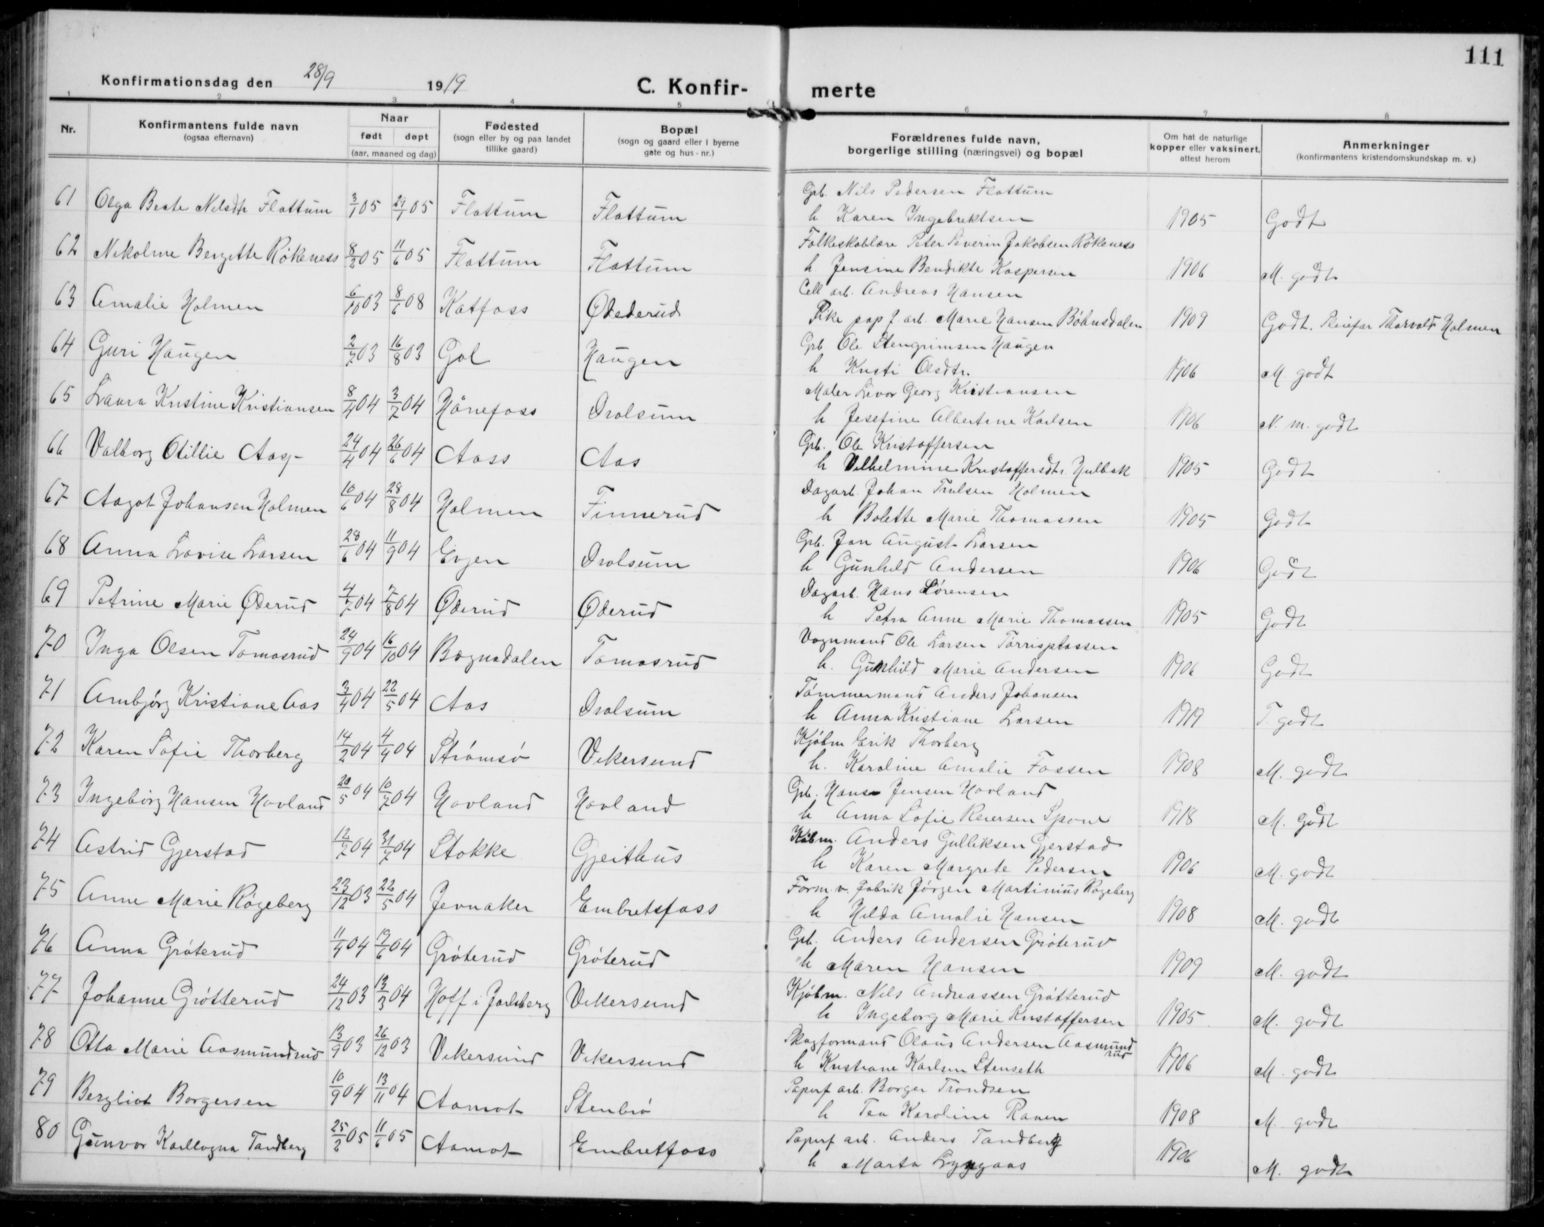 111
Konfirmationsdag den 28/9 1919 C. Konfir- merte
1 2 3 4 5 6 7 8
Nr. Konfirmantens fulde navn (ogsaa efternavn) Naar født døpt (aar, maaned og dag) Fødested (sogn eller by og paa landet tillike gaard) Bopæl (sogn og gaard eller i byerne gate og hus-nr.) Forældrenes fulde navn, borgerlige stilling (næringsvei) og bopæl Om hat de naturlige kopper eller vaksinert, attest herom Anmerkninger (konfirmantens kristendomskundskap m. v.)
61 Olga Beate Nilsdtr Flattum 3/1 05 29/1 05 Flattum Flattum Gb. Nils Pedersen Flattum
h Karen Ingebrektsen 1905 Godt
62 Nikoline Bergitte Røkeness 8/2 05 11/6 05 Flattum Flattum Folkeskolelære Peter Severin Jakobsen Røkeness
h Jensine Bendikte Kaspersen 1906 M. godt
63 Amalie Holmen 6/10 03 8/6 08 Katfoss Ødederud Cell arb. Andreas Hansen
Pike pap f arb Marie Hansen Bøhnsdalen 1909 Godt. Thorvald Holmen
64 Guri Haugen 2/7 03 16/8 03 Gol Haugen Gb Ole Stengrimsen Haugen
h Kristi Olsdtr. 1906 M godt
65 Laura Kristine Kristiansen 8/4 04 3/7 04 Hånefoss Dralsum Maler Levor Georg Kristiansen
h Jesefine Albertine Karlsen 1906 N. m. godt
66 Valborg Otillie Aas 24/4 04 26/6 04 Aass Aas Gb. Ole Kristoffersen
h Vilhelmine Kristoffersdtr. Hulbak 1905 Godt
67 Aagot Johansen Holmen 16/6 04 28/8 04 Holmen Finnerud Dagarb Johan Trulsen Holmen
h Bolette Marie Thomassen 1905 Godt
68 Anna Lovise Larsen 28/6 04 11/9 04 Evjen Dralsum Gb. Jan August Larsen
h Gunhild Andersen 1906 Godt
69 Petrine Marie Øderud 4/7 04 7/8 04 Øderud Øderud Dagarb. Hans Sørensen
h Petra Anne Marie Thomassen 1905 Godt
70 Inga Olsen Tomasrud 24/9 04 16/10 04 Bægnadalen Tomasrud Vognmand Ole Larsen Torrisplassen
h. Gunhild Marie Andersen 1906 Godt
71 Ambjørg Kristiane Aas 3/4 04 22/5 04 Aas Dralsum Tømmermand Anders Johansen
h Anna Kristiane Larsen 1919 T. godt
72 Karen Sofie Thorberg 14/2 04 4/4 04 Strømsø Vikersund Kjøbm Erik Thorberg
h. Karoline Amalie Fossen 1908 M. godt
73 Ingebørg Hansen Hovland 20/5 04 10/7 04 Hovland Hovland Gb. Hans Jensen Hovland
h Anna Sofie Reiersen Spone 1918 M. godt
74 Astrid Gjerstad 12/2 04 31/7 04 Stokke Gjeithus Købm. Anders Gulliksen Gjerstad
h Karen Margrete Pedersen 1906 M. godt
75 Anne Marie Rögeberg 23/12 03 22/5 04 Jevnaker Embretsfoss Form v. fabrik Jörgen Martinius Rögeberg
h Hilda Amalie Hansen 1908 M. godt
76 Anna Gröterud 11/4 04 19/6 04 Gröterud Gröterud Gb. Anders Andersen Gröterud
h Maren Hansen 1909 M. godt
77 Johanne Grötterud 24/12 03 13/3 04 Hoff i Jarlsberg Vikersund Kjøbm. Nils Andreassen Grötterud
h Ingeborg Marie Kristoffersen 1905 M. godt
78 Otta Marie Aasmundrud 13/9 03 26/12 03 Vikersund Vikersund Skogformand Olaus Andersen Aasmundrud
h Kristiane Karlsen Stenseth 1906 M. godt
79 Bergliot Borgersen 10/9 04 13/11 04 Aamot Stenbrö Papirf arb. Borger Trondsen
h Tea Karoline Raaen 1908 M. godt
80 Gunvor Karllogna Tandberg 25/2 05 11/6 05 Aamot Embretfoss Papirf arb. Anders Tandberg
h Marta Lyngaas 1906 M. godt